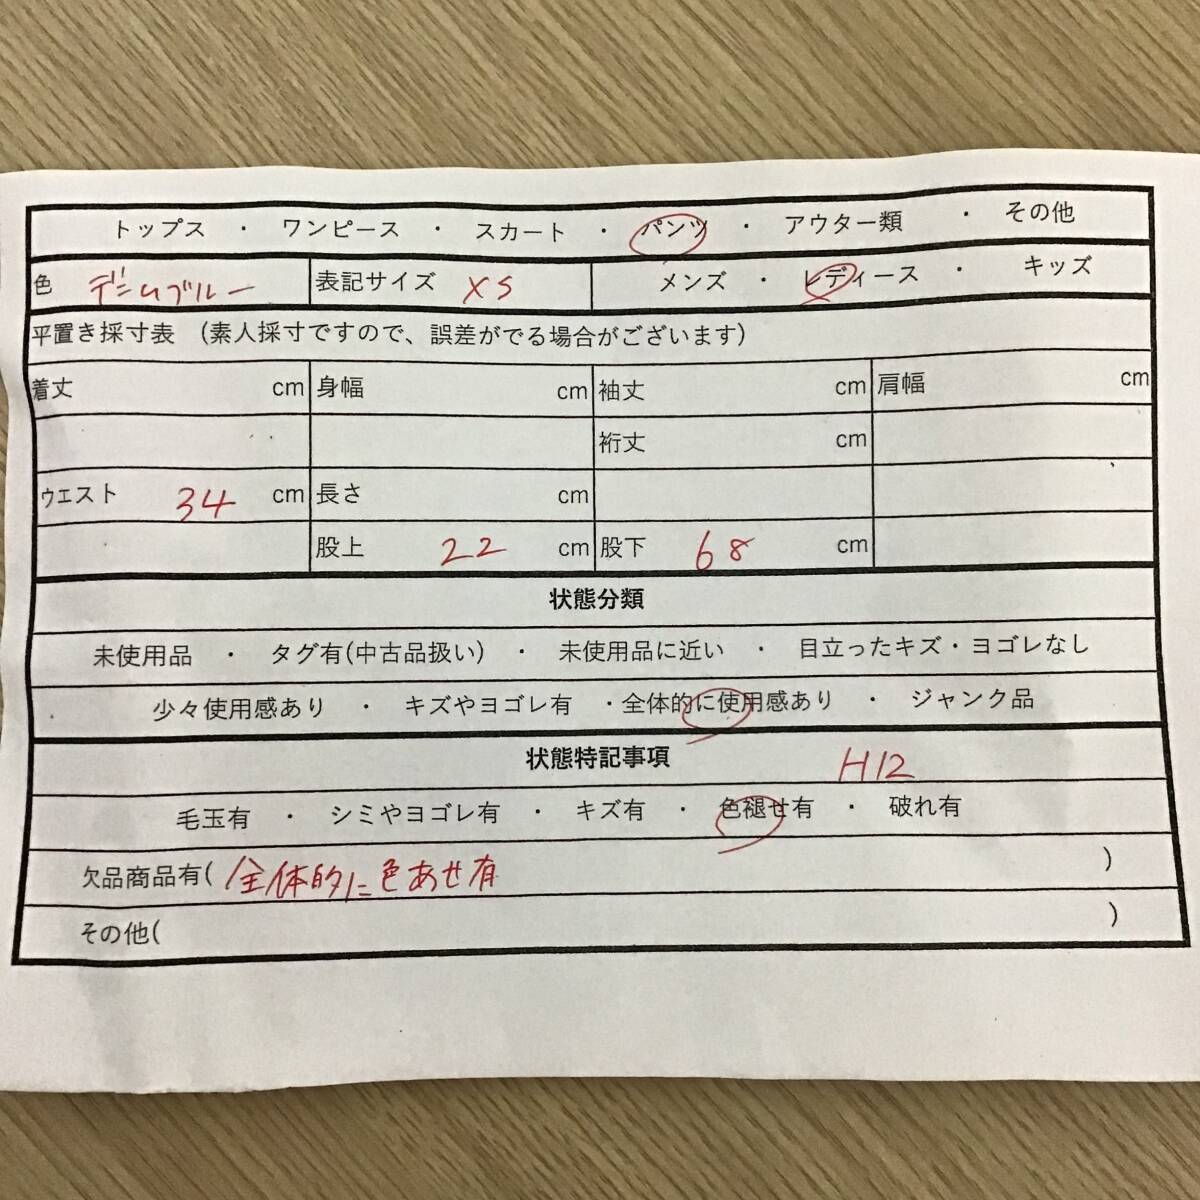 トップス ・ ワンピース ・ スカート ・ パンツ ・ アウター類 ・ その他
色 デニムブルー 表記サイズ XS メンズ ・ レディース ・ キッズ
平置き採寸表 (素人採寸ですので、誤差がでる場合がございます)
着丈 cm 身幅 cm 袖丈 cm 肩幅 cm
裄丈 cm
ウエスト 34 cm 長さ cm
股上 22 cm 股下 68 cm
状態分類
未使用品 ・ タグ有(中古品扱い) ・ 未使用品に近い ・ 目立ったキズ・ヨゴレなし
少々使用感あり ・ キズやヨゴレ有 ・全体的に使用感あり ・ ジャンク品
状態特記事項 H12
毛玉有 ・ シミやヨゴレ有 ・ キズ有 ・ 色褪せ有 ・ 破れ有
欠品商品有( 全体的に色あせ有 )
その他( )